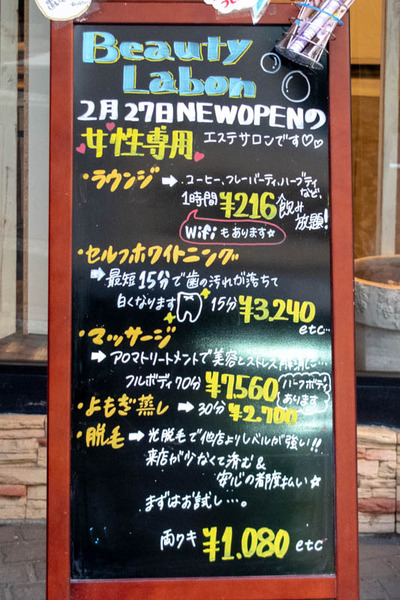 Beauty
Labon
2月27日NEWOPENの
女性専用 エステサロンです♡♡
・ラウンジ➡コーヒー、フレーバーティ、ハーブティ
など、
1時間¥216飲み
放題!
Wifiもあります☆
・セルフホワイトニング
➡最短15分で歯の汚れが落ちて
白くなります 15分¥3,240
etc…
・マッサージ
➡アロマトリートメントで美容とストレス解消に…
フルボディ70分¥7,560 ハーフボディ
あります
・よもぎ蒸し➡30分¥2,700
・脱毛➡光脱毛で他店よりレベルが強い!!
来店が少なくて済む&
安心の都度払い☆
まずはお試し…。
両ワキ¥1,080 etc